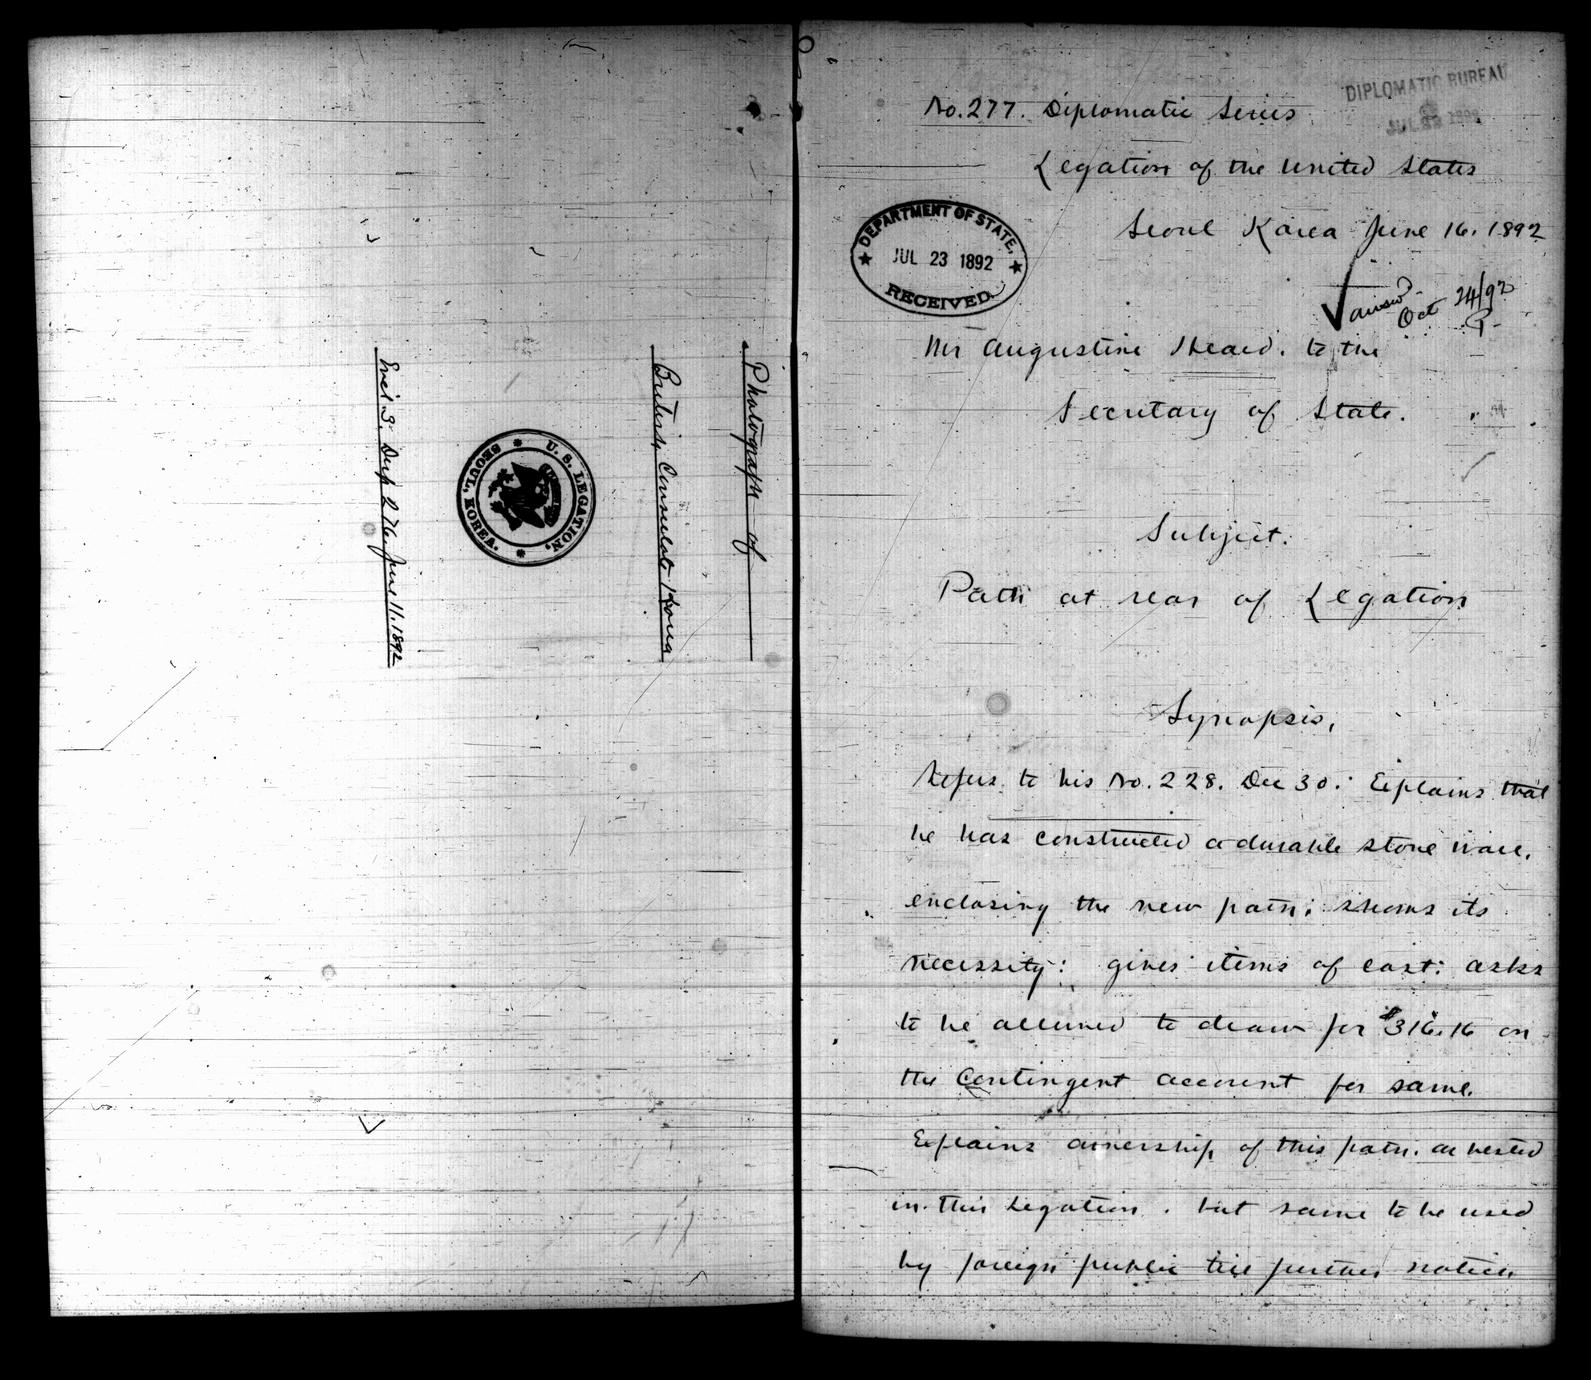 Photograph of
British Consulate
U. S. LEGATION,
SEOUL, KOREA.
Encl 3. Disp 276. June 11. 1892
DIPLOMATIC BUREAU
JUL 1892
No. 277. Diplomatic Series
Legation of the United States
Seoul Korea June 16. 1892
DEPARTMENT OF STATE,
JUL 23 1892
RECEIVED
answd Oct 24/92
Mr Augustine Heard. to the
Secretary of State.
Subject.
Path at rear of Legation
Synopsis.
Refers to his No. 228. Dec 30: Explains that
he has constructed a durable stone wall,
enclosing the new path: shows its
necessity: gives items of cost: asks
to be allowed to draw for $316.16 on
the Contingent account for same.
Explains ownership of this path. as vested
in this Legation. but same to be used
by foreign public till further notice